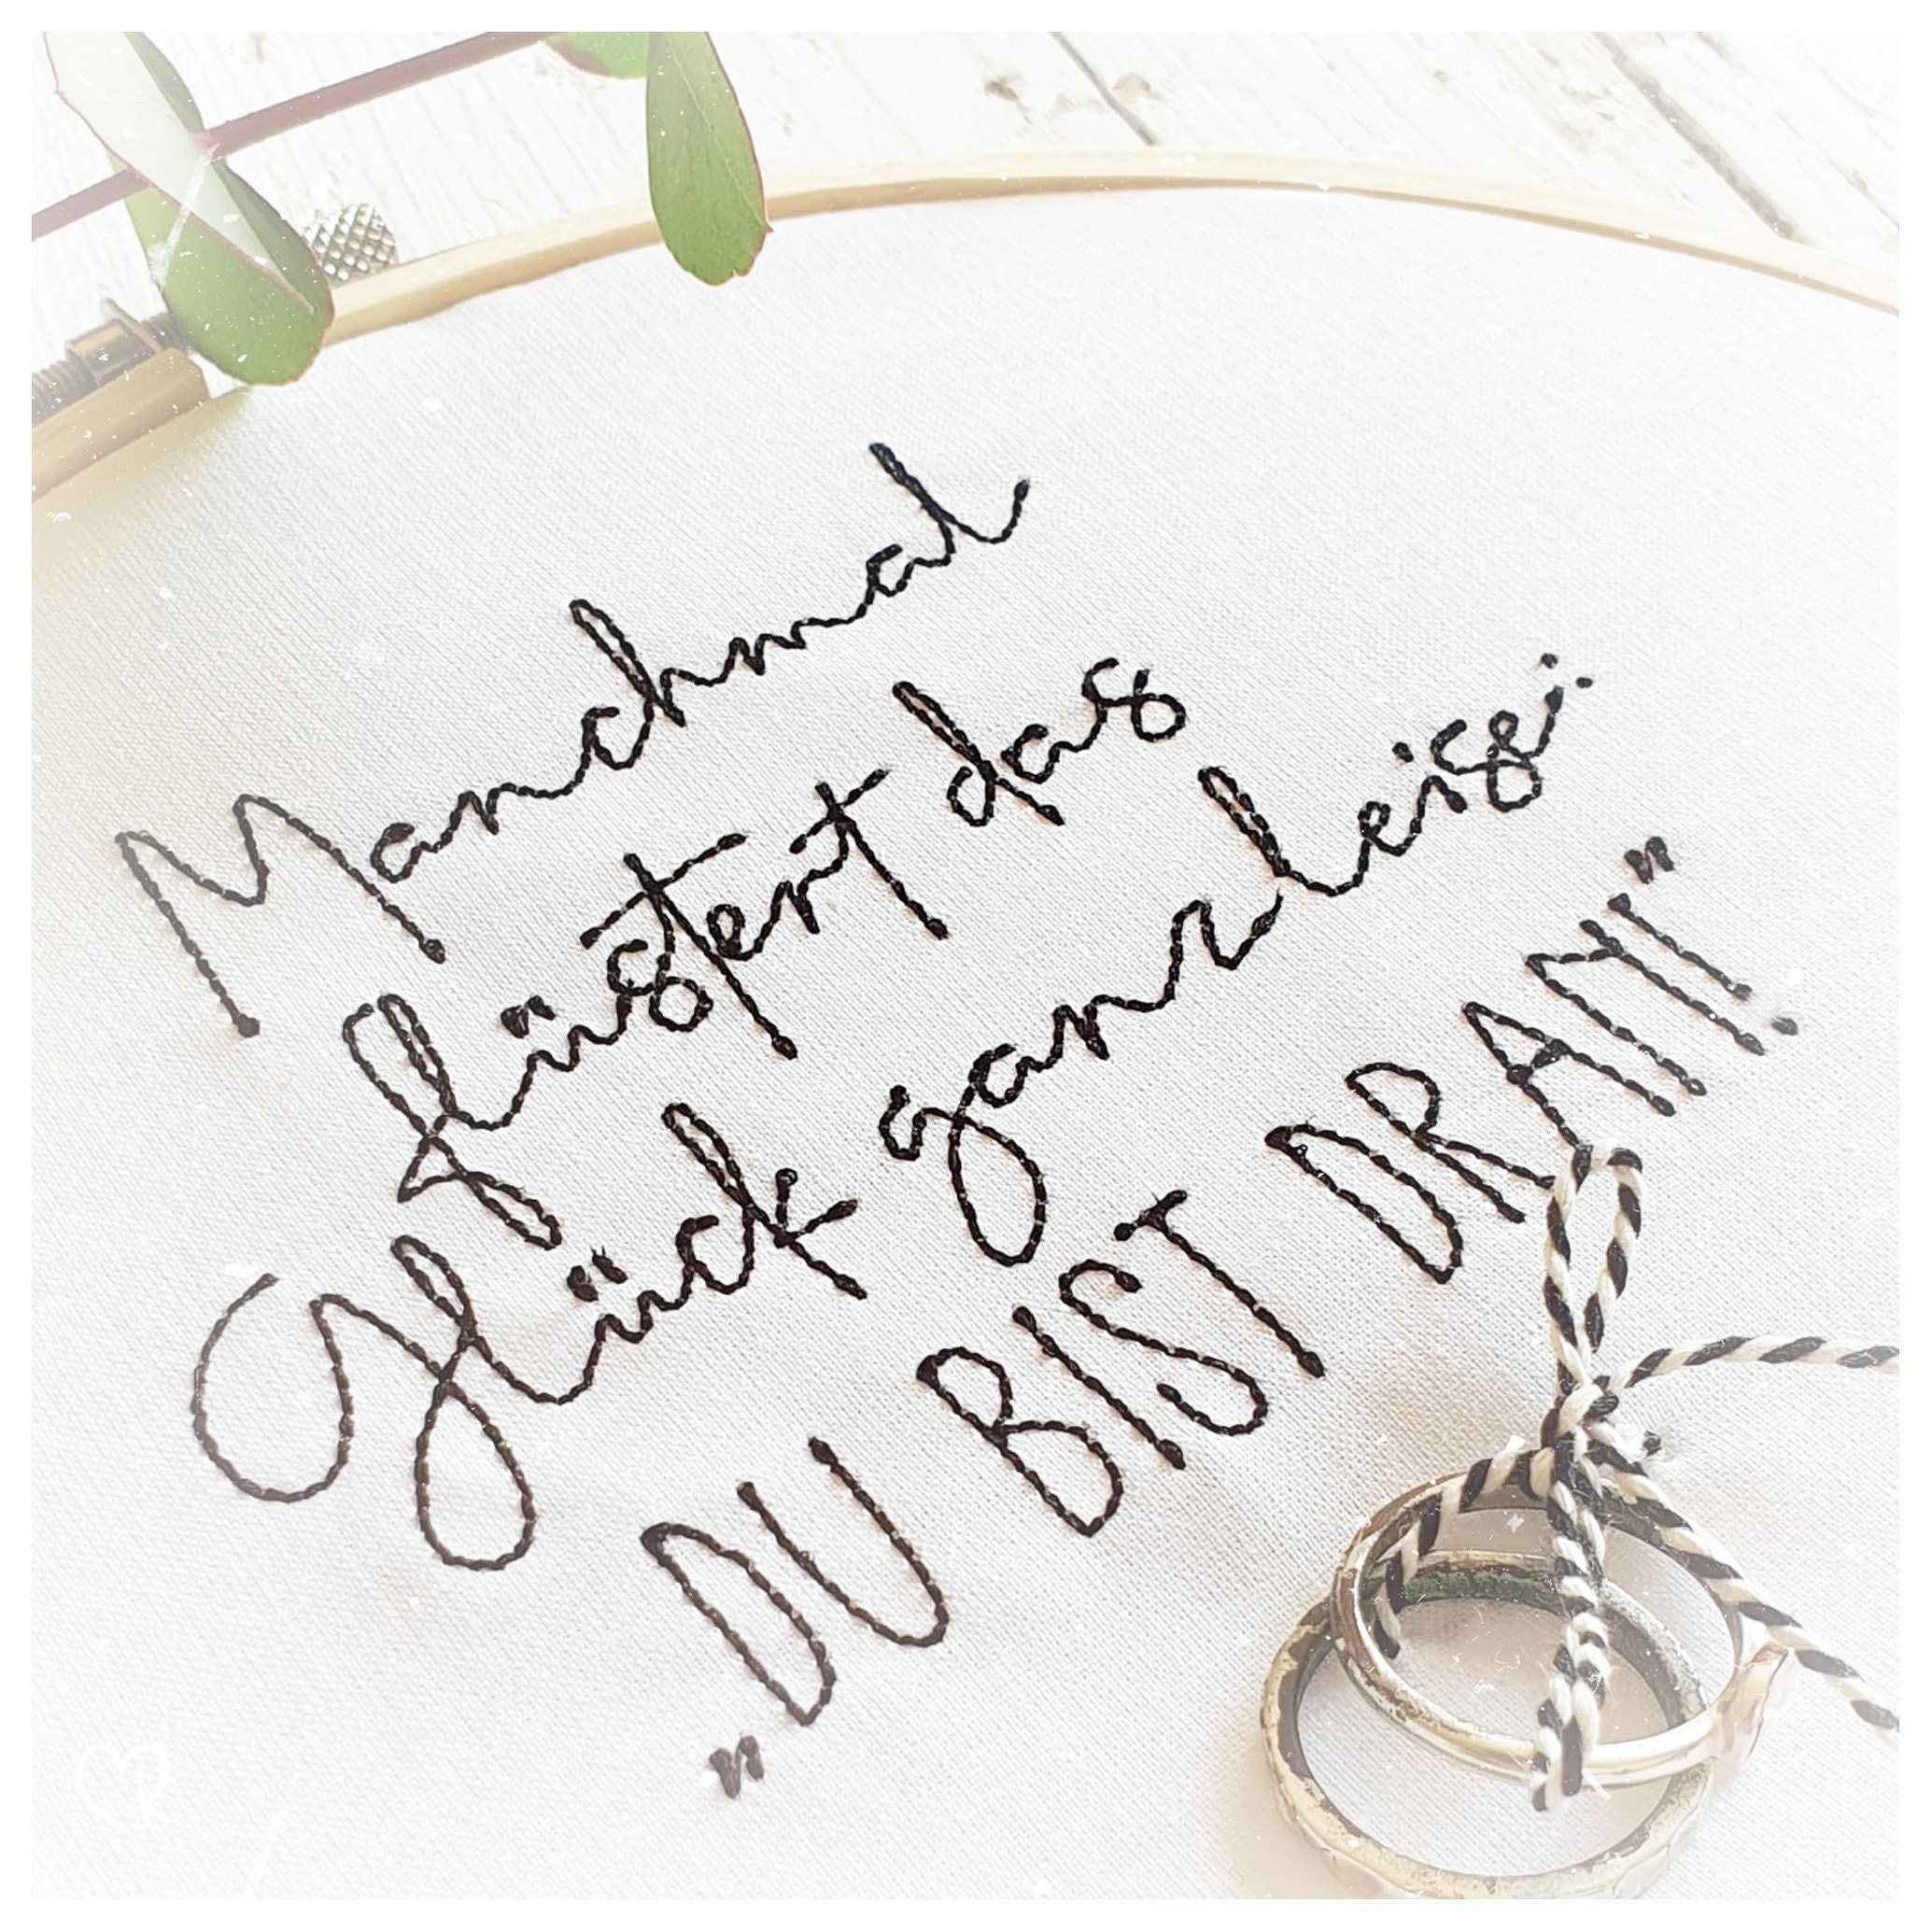 Manchmal
flüstert das
Glück ganz leise:
„DU BIST DRAN!"